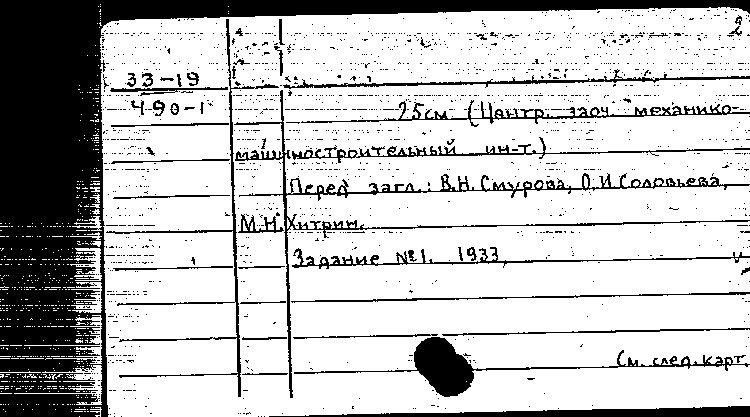 2
33-19
490-1
25см (Центр. заоч. механико-
машиностроительный ин-т.)
Перед загл.: В.Н. Смурова, О.И. Соловьева,
М.Н. Хитрин.
Задание №1. 1933,
См. след. карт.